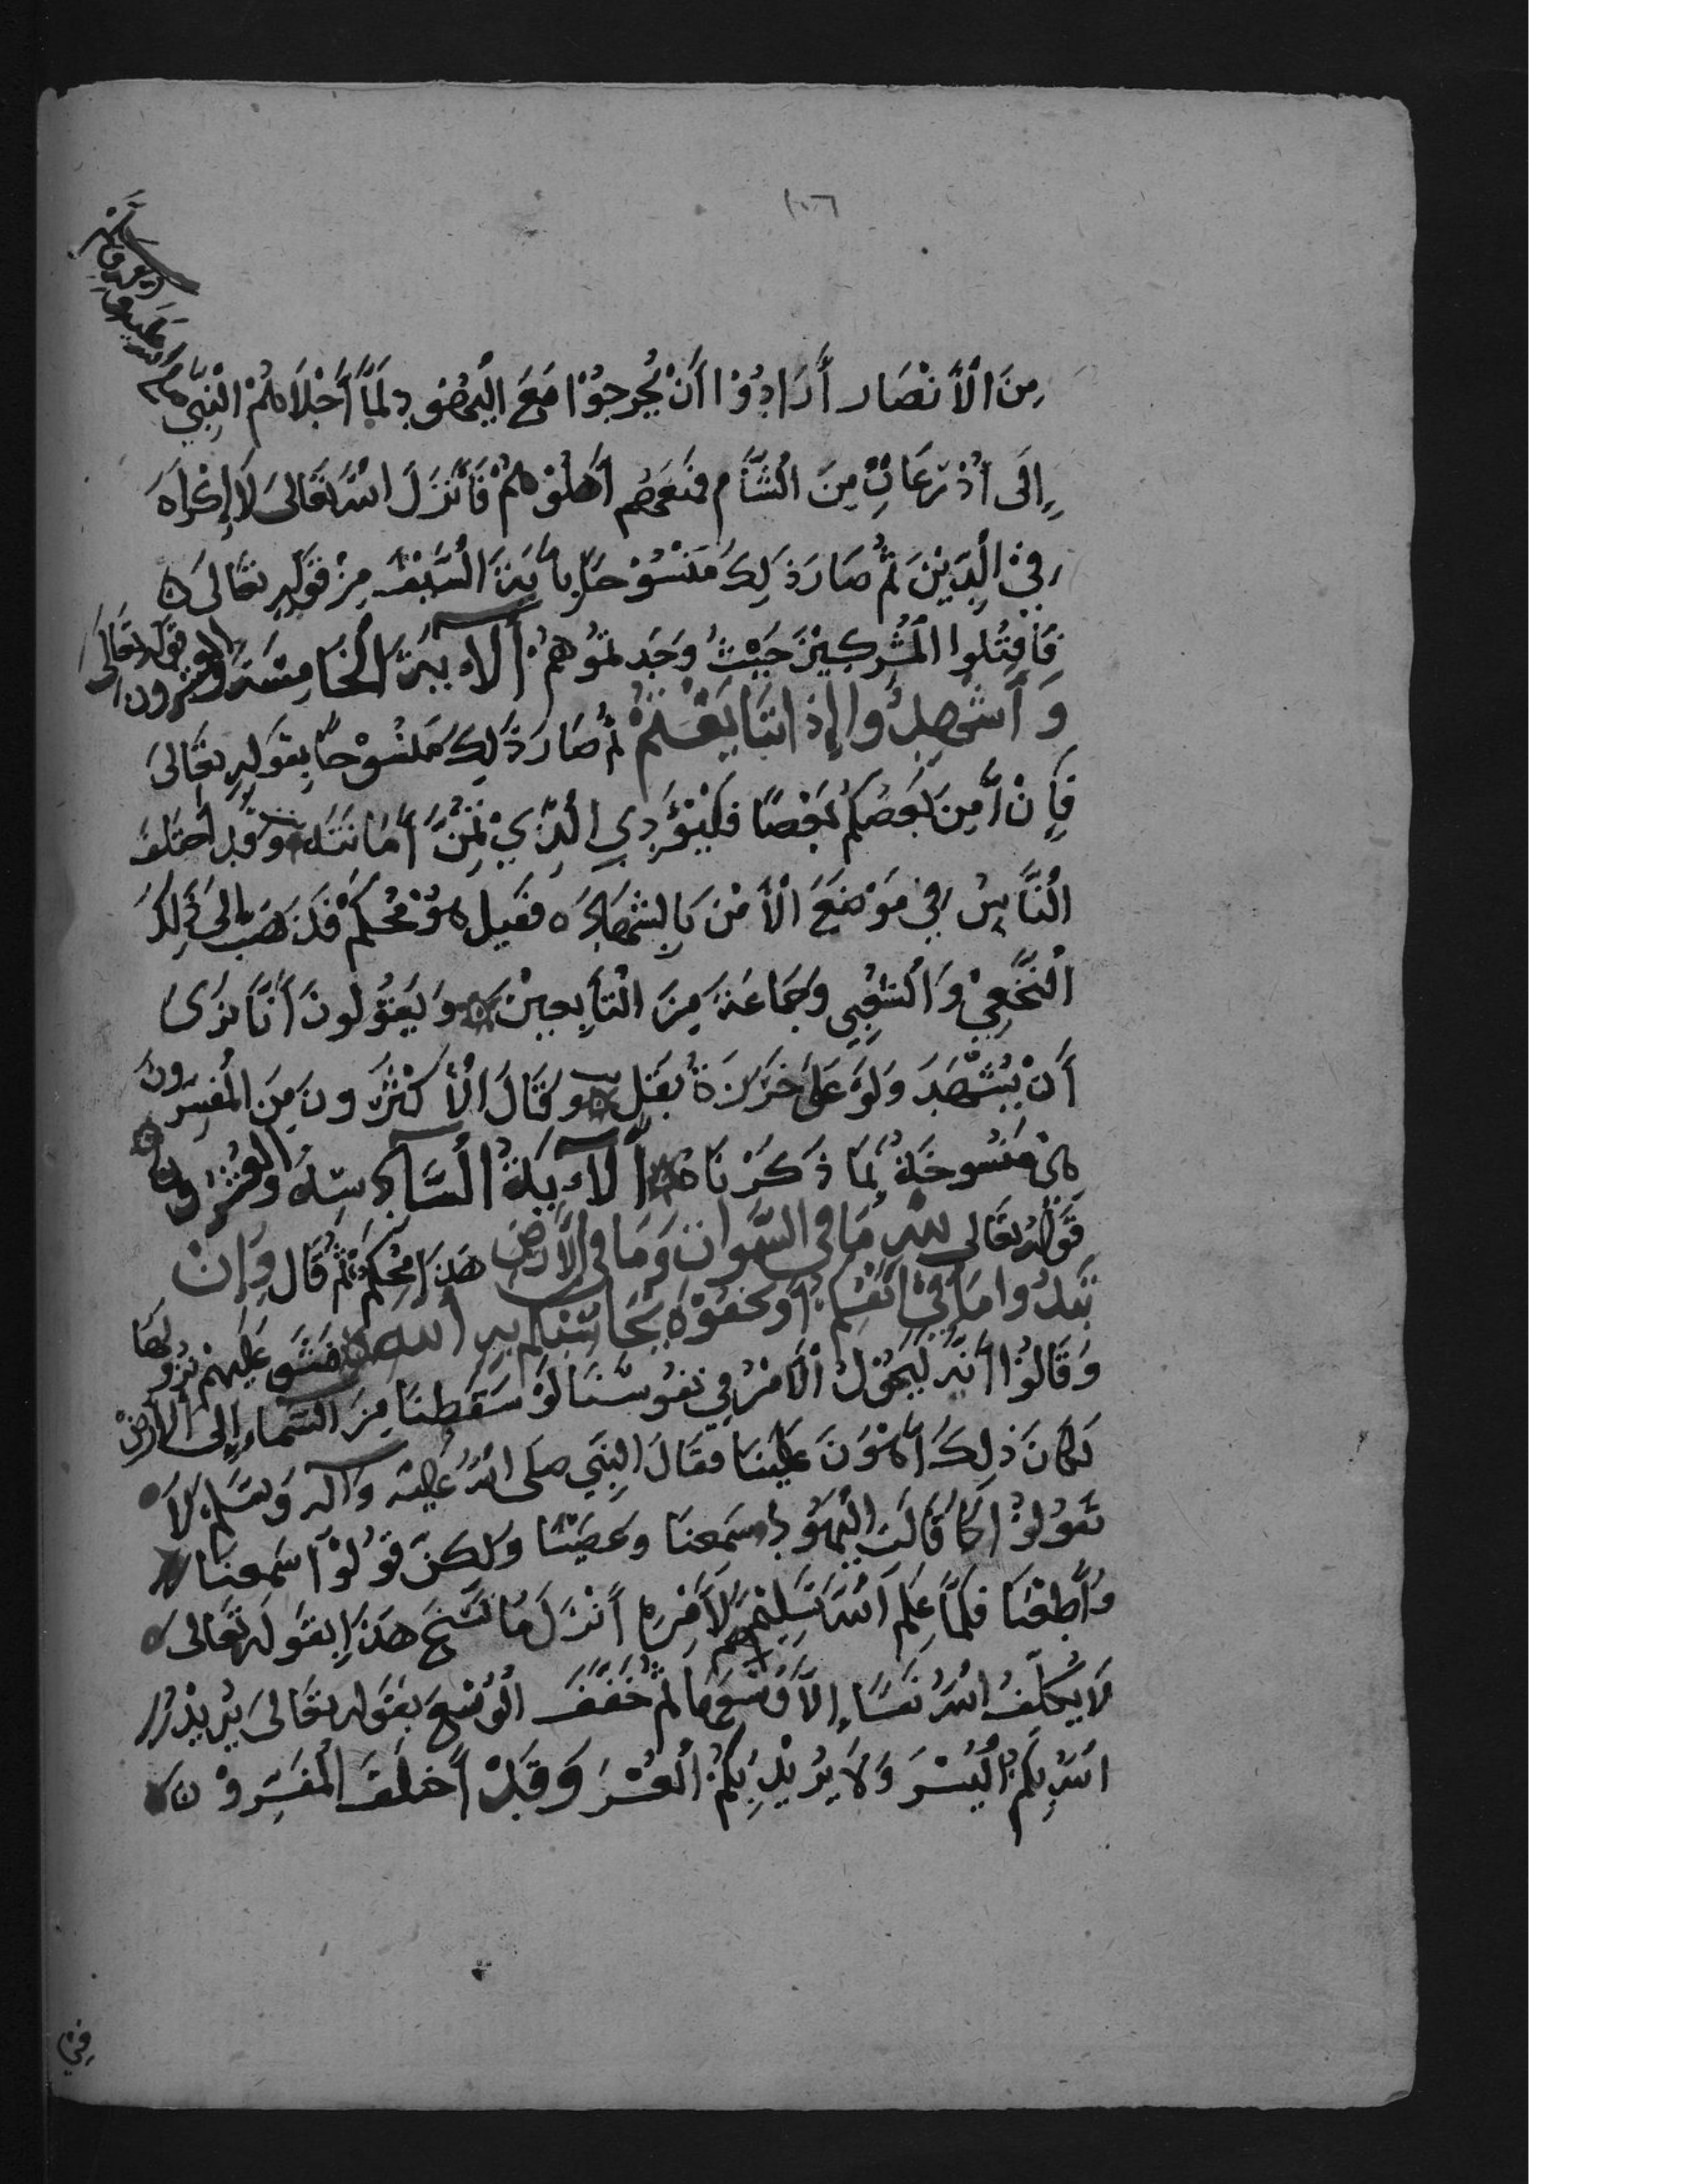 ١٠٦
مِنَ الْأَنْصَار أَرَادُوْا أَنْ يُخْرِجُوْا مَعَ الْيَهُوْد لَمَّا أَجْلَاهُمُ الْنَّبِيُّ صلى الله عليه وآله وسلم
إِلَى أَذْرَعَاتٍ مِنَ الْشَّأْم فَمَنَعَهُم أَهْلُوْهُمْ فَأَنْزَلَ اللهُ تَعَالَى لَا إِكْرَاهَ
فِيْ الْدِّيْنِ ثُمَّ صَارَ ذَلِكَ مَنْسُوْخًا بِأيَةِ الْسَّيْفِ مِنْ قَوْلِهِ تَعَالَى
فَاقْتُلُوا الْمُشْرِكِيْنَ حَيْثُ وَجَدتُمُوْهُمْ الآيَةُ الْخَامِسَة والعشرون قوله تعالى
وَأَشْهِدُوا إِذَا تَبَايَعْتُمْ ثُمَّ صَارَ ذَلِكَ مَنْسُوْخًا بِقَوْلِهِ تَعَالَى
فَإِنْ أَمِنَ بَعْضُكُمْ بَعْضًا فَلْيُؤَدِي الَّذِيْ تُمِنَ أَمَانَتَهُ وَقَد اختلف
الْنَّاس فِي مَوْضَعَ الْأَمْنَ بِالشَّهَادَه فقيل هُوَ مُحْكَمٌ فَذَهَبَ إِلَى ذَلِكَ
الْنَّخَعِيْ وَالْشَّعْبِي وَجَمَاعَةٌ مِنَ الْتَّابِعِيْنَ وَيَقُوْلُونَ أَنَّا نَرَى
أَنْ يُشْهَدَ وَلَوْ عَلَى جَرَزَةُ بَقْلٍ وَقَالَ الْأَكْثَرُونَ مِنَ الْمُفَسِّرُونَ
هِيَ مَنْسُوخَةٌ بِمَا ذَكَرْنَاهُ الآيَةُ الْسَّادِسَةُ وَالعُشْرُوْن
قَوْلُهُ تَعَالى للهِ مَا فِي السَّمَوَاتِ وَمَا فِي الْأَرْضِ هَذَا مُحْكَم ثُمَّ قَالَ وَإِنْ
تُبْدُوا مَا فِيْ أَنْفُسِكُمْ أَوْ تُخْفُوْهُ يُحَاسِبْكُمْ بِهِ اللهُ فَشَقَّ عَلَيْهِمْ نُزُولُهَا
وَقَالُوْا أَنَّهُ لَيَجُوْلُ الْأَمْرُ فِي نفوسنَا لَوْ سَقَطْنَا مِنَ السَّمَاء إِلَى الْأَرْضِ
لكانَ ذَلِكَ أَهْوَنَ عَلَيْنَا فقَالَ النَّبِي صلى اللهُ عَلَيْهِ وَآله وَسَلَّم لَا
تَقُوْلُوْا كَمَا قَالَت الْيَهُوْد سَمِعنَا وَعَصَيْنَا وَلَكِنْ قُوْلُوْا سَمِعنَا
وَأَطَعْنَا فَلَمَّا عَلِمَ اللهُ تَسْلِيْمَهُم لِأَمْرِهِ أَنْزَلَ مَا نَسَخَ هَذَا بِقَوْلِهِ تَعَالى
لَا يُكَلِّفُ اللهُ نَفْسًا إِلَّا وُسْعَهَا ثُمَّ خَفَّفَ الْوُسْعَ بِقَوْلِه تَعَالَى يُرِيْدُ
اللهُ بِكُمُ الْيُسْرَ وَلَا يُرِيْدُ بِكُمُ الْعُسْرَ وَقَدْ أَختَلَفَ الْمُفَسِّرُوْنَ
فِيْ